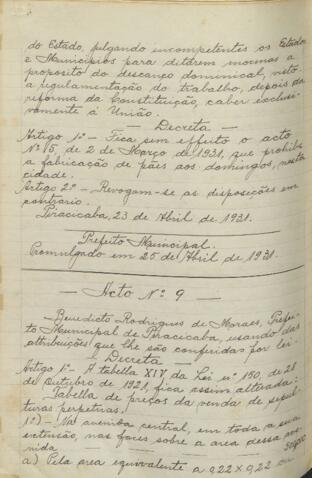 do Estado, julgando incompetentes os Estados
e Municipios para ditarem normas a
proposito do descanço dominical, visto
a regulamentação do trabalho, depois da
reforma da Constituição, caber exclusi-
vamente á União.
— Decreta —
Artigo 1º — Fica sem effeito o acto
Nº 15, de 2 de Março de 1931, que prohibe
a fabricação de pães aos domingos, nesta
cidade.
Artigo 2º — Revogam-se as disposições em
contrario.
Piracicaba, 23 de Abril de 1931.
Prefeito Municipal.
Promulgado em 25 de Abril de 1931.
— Acto Nº 9 —
Benedicto Rodrigues de Moraes, Prefei-
to Municipal de Piracicaba, usando das
attribuições que lhe são conferidas por lei
Decreta —
Artigo 1º — A tabella XIV da Lei nº 150, de 28
de Outubro de 1921, fica assim alterada:
Tabella de preços da venda de sepul-
turas perpetuas.
1º) — Na avenida central, em toda a sua
extensão, nas faces sobre a area dessa ave-
nida
a) Pela area equivalente a 0,22 x 0,22 ou